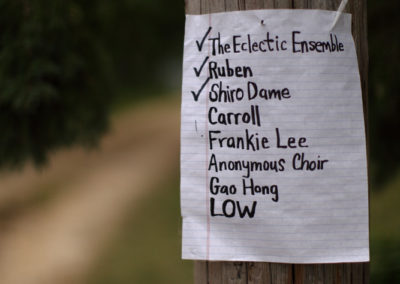 ✓ The Eclectic Ensemble
✓ Ruben
✓ Shiro Dame
Carroll
Frankie Lee
Anonymous Choir
Gao Hong
LOW